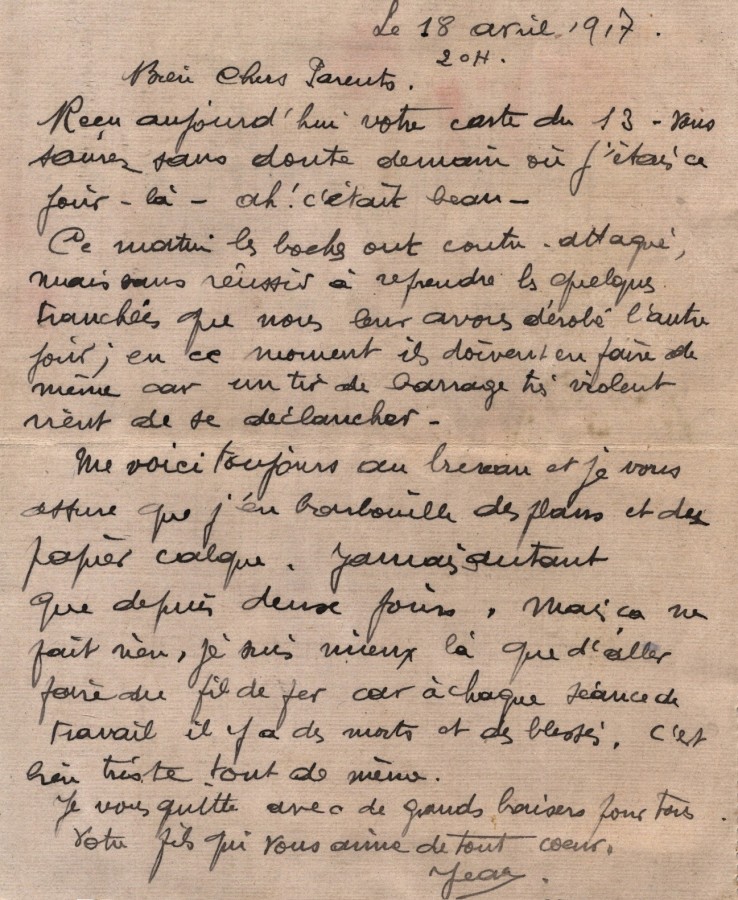 Le 18 avril 1917.
20H.
Bien Chers Parents.
Reçu aujourd'hui votre carte du 13 - vous
saurez sans doute demain où j'étais ce
jour - là - ah! c'était beau -
Ce matin les boches ont contre-attaqué,
mais sans réussir à reprendre les quelques
tranchées que nous leur avons dérobé l'autre
jour; en ce moment ils doivent en faire de
même car un tir de barrage très violent
vient de se déclancher -
Me voici toujours au bureau et je vous
assure que j'en barbouille des plans et des
papier calque. Jamais autant
que depuis deux jours. Mais ça ne
fait rien, je suis mieux là que d'aller
faire du fil de fer car à chaque séance de
travail il y a des morts et des blessés. C'est
bien triste tout de même.
Je vous quitte avec de grands baisers pour tous.
Votre fils qui vous aime de tout coeur.
Jean.